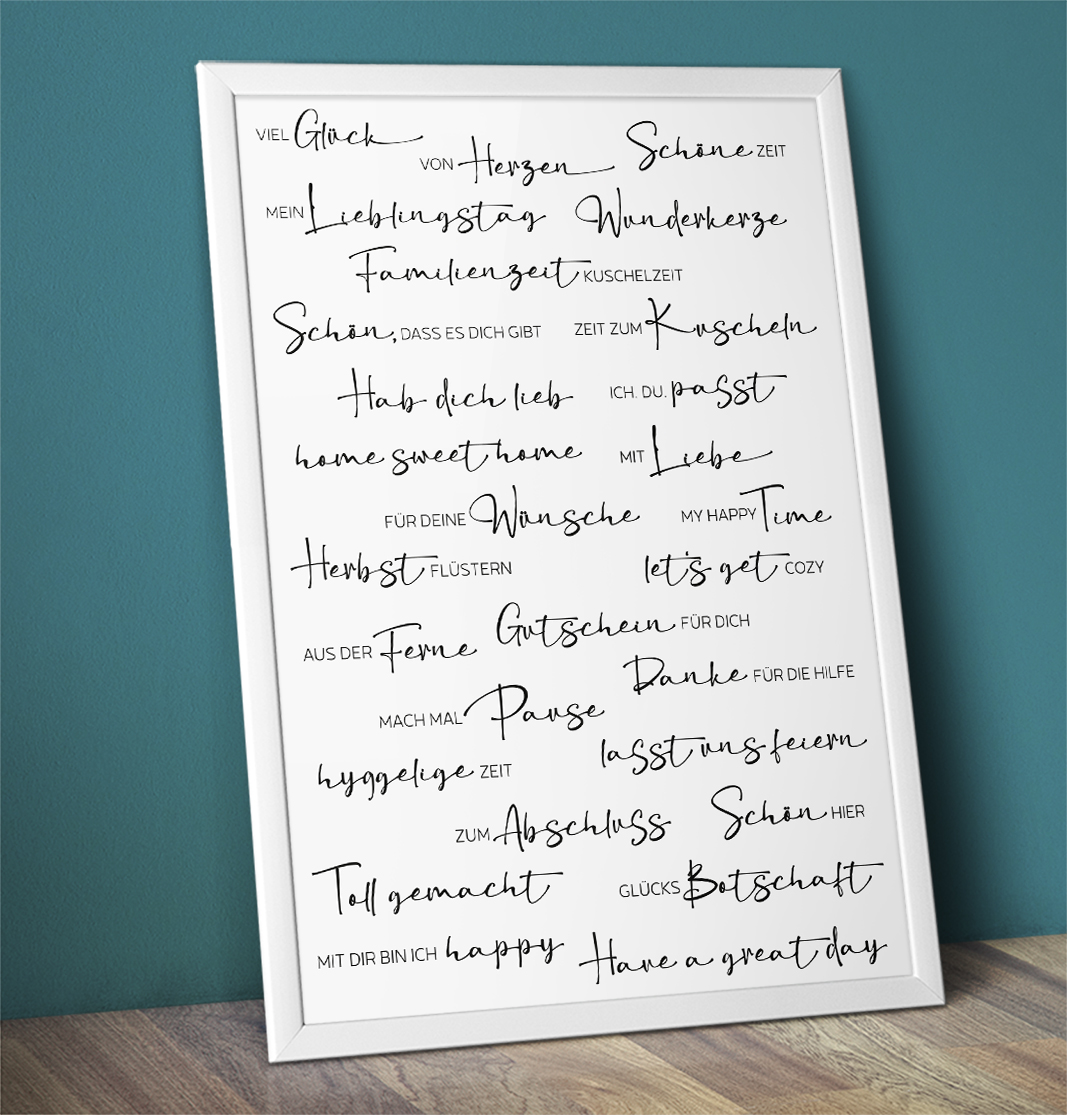 VIEL Glück
VON Herzen
Schöne ZEIT
MEIN Lieblingstag
Wunderkerze
Familienzeit KUSCHELZEIT
Schön, DASS ES DICH GIBT
ZEIT ZUM Kuscheln
Hab dich lieb
ICH. DU. passt
home sweet home
MIT Liebe
FÜR DEINE Wünsche
MY HAPPY Time
Herbst FLÜSTERN
let's get COZY
Gutschein FÜR DICH
AUS DER Ferne
Danke FÜR DIE HILFE
MACH MAL Pause
lasst uns feiern
hyggelige ZEIT
ZUM Abschluss
Schön HIER
Toll gemacht
GLÜCKS Botschaft
MIT DIR BIN ICH happy
Have a great day